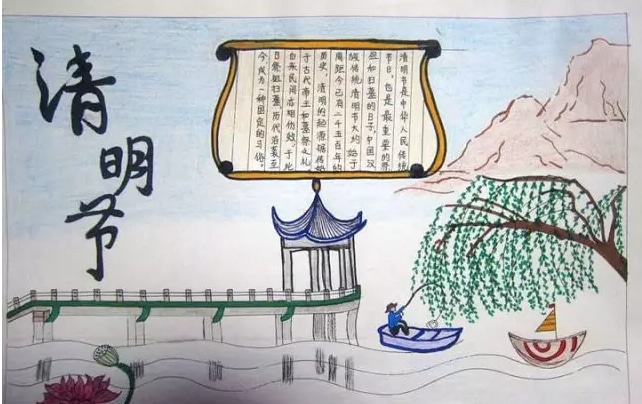 清明节
清明节是中华人民传统
节日,也是最重要的祭
祖和扫墓的日子,中国汉
族传统清明节大约始于
周距今已有二千五百年的
历史,清明的起源据传始
于古代帝王和墓祭之礼
民间 仿效,于此
日祭祖扫墓,历代沿袭至
今成为一种固定的习俗。